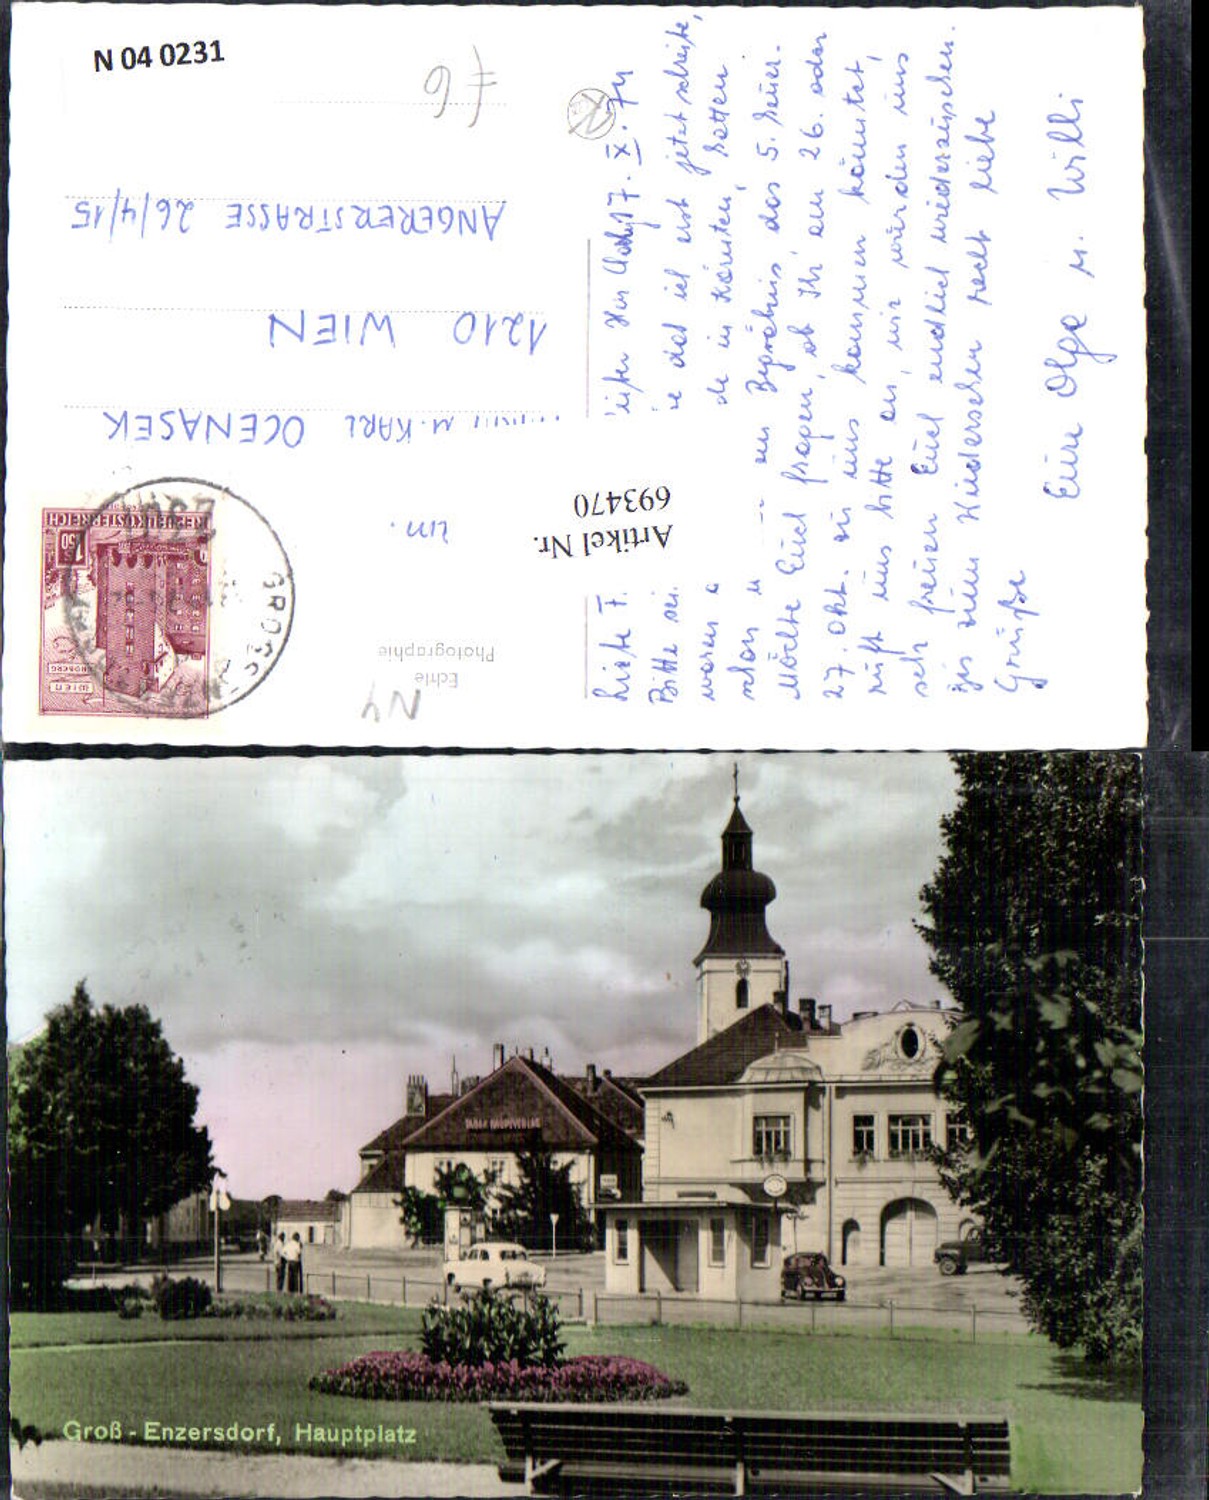 N 04 0231
€6
REPUBLIK ÖSTERREICH
1.50
WIEN
GROSS
2301
M. KARL OCENASEK
1210 WIEN
ANGERERSTRASSE 26/4/15
um.
Artikel Nr.
693470
Echte
Photographie
NY
17. X. 74
Bitte daß ich erst jetzt schreibe,
waren in Kärnten, hatten
schon ein Begräbnis das 5. heuer.
Möchte Euch fragen, ob Ihr am 26. oder
27. Okt. zu uns kommen könntet,
ruft uns bitte an, wir würden uns
sehr freuen Euch endlich wiederzusehen.
Bis zum Wiedersehen recht liebe
Grüße
Eure Olga u. Willi
TABAK HAUPTVERLAG
Groß-Enzersdorf, Hauptplatz